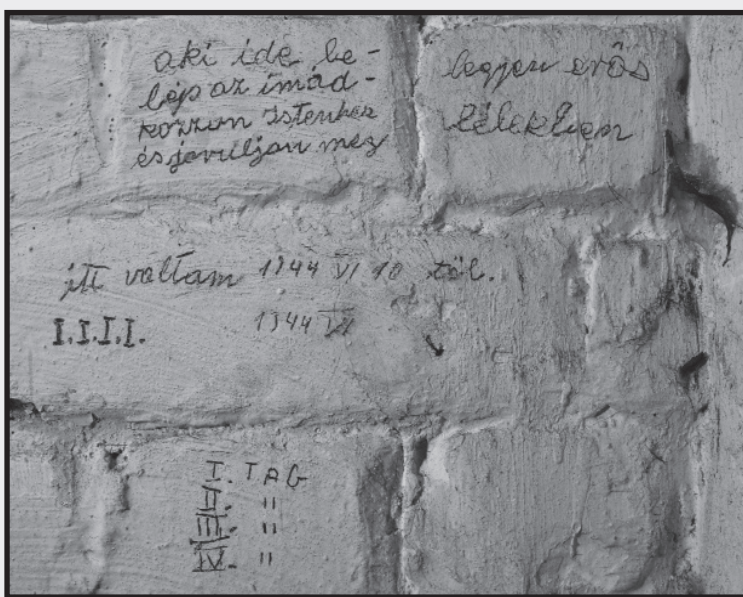 aki ide be-
lép az imád-
kozzon Istenhez
és javuljon meg
legyen erős
lélekben
itt voltam 1944 VI 10 től.
I.I.I.I.
1944 VI
I. TAG
II. "
III. "
IV. "